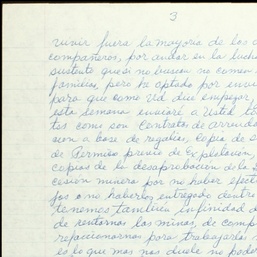 3
vivir fuera la mayoria de los c
compañeros, por andar en la lucha
sustento que si no buscan no comen
familias, pero he optado por envi
para que como Ud dice empezar,
esta semana enviaré a Usted to
tos como son Contratos de arrenda
sion a base de regalias, Copia de s
de Permiso previo de Explotación
copias de la desaprobación de la S
cesión minera por no haber efect
jos o no haberlos entregado dentro
tenemos tambien infinidad d
de rentarnos las minas, de comp
refaccionarnos para trabajarlas
es lo que mas nos duele no poder